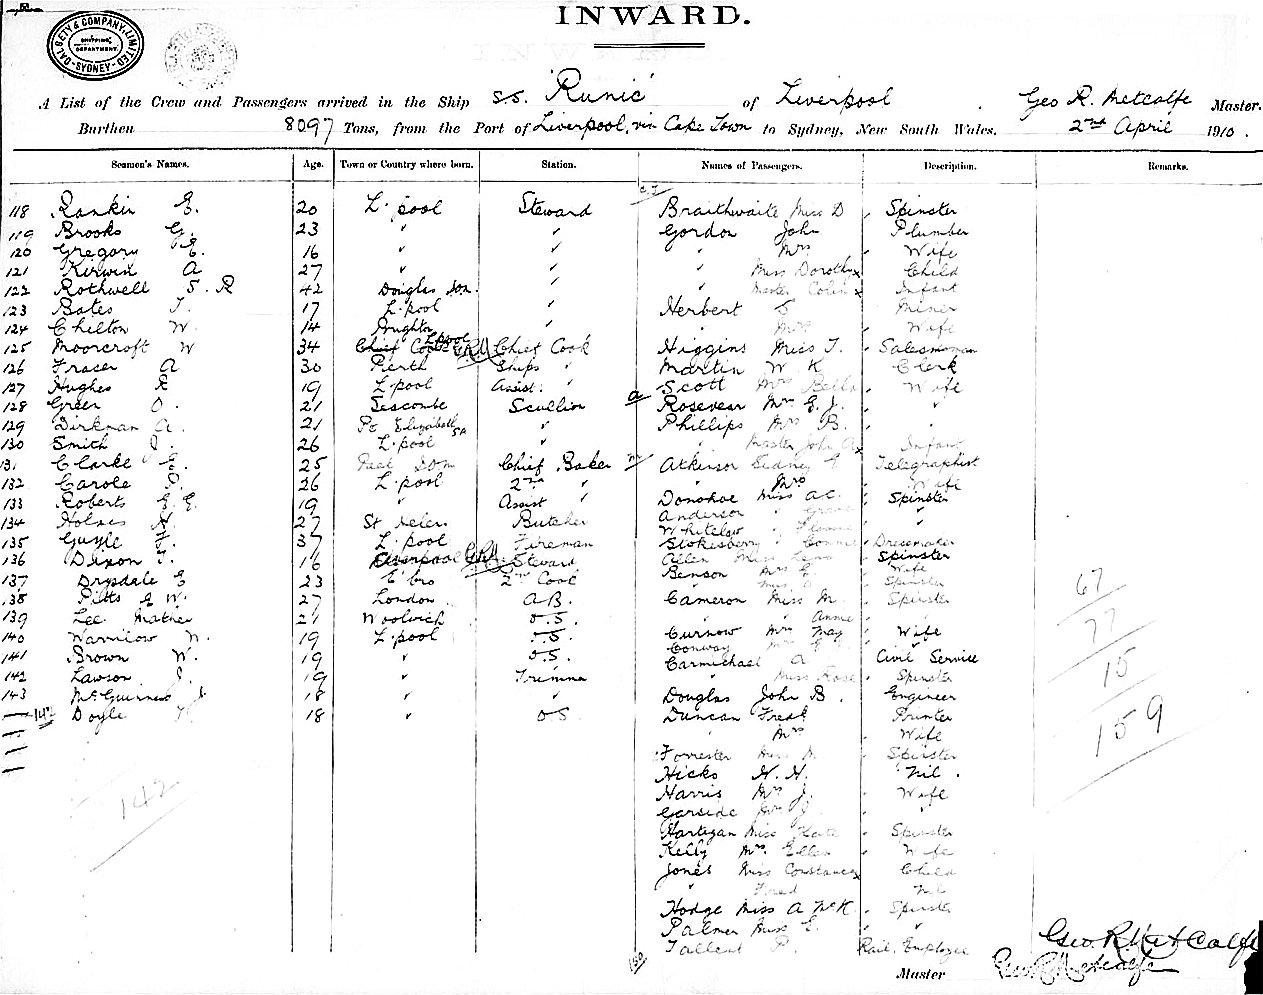 INWARD.
DALGETY & COMPANY, LIMITED
SHIPPING DEPARTMENT.
SYDNEY
A List of the Crew and Passengers arrived in the Ship S.S. "Runic" of Liverpool. Geo R. Metcalfe Master.
Burthen 8097 Tons, from the Port of Liverpool, via Cape Town to Sydney, New South Wales. 2nd April 1910.
Seamen's Names. Age. Town or Country where born. Station. Names of Passengers. Description. Remarks.
118 Rankin E. 20 L'pool Steward Braithwaite Miss D Spinster
119 Brooks G. 23 " " Gordon John Plumber
120 Gregory E. 16 " " " Mrs Wife
121 Kirwin A 27 " " " Miss Dorothy x Child
122 Rothwell S. R 42 Douglas IOM. " " Master Colin x Infant
123 Bates T. 17 L'pool " Herbert S Miner
124 Chilton W. 14 " " Mrs Wife
125 Moorcroft W 34 L'pool Chief Cook Higgins Miss T. Saleswoman
126 Fraser A 30 Perth Ships " Martin W K Clerk
127 Hughes R 19 L'pool Assist. " Scott Mrs Bella Wife
128 Green O. 21 Seacombe Scullion Rosevear Mrs E. J. "
129 Dirkman A. 21 Pt Elizabeth SA " Phillips Mrs B. "
130 Smith J. 26 L'pool " " Master John A x Infant
131 Clarke E. 25 Peel IOM Chief Baker Atkinson Sidney E Telegraphist
132 26 L'pool 2nd " " Mrs Wife
133 Roberts E. E. 19 " Assist " Donohoe Miss A C. Spinster
Anderson " Grace "
134 Holmes H. 27 St Helens Butcher Whitelaw " "
135 Guyle F. 37 L'pool Fireman Stokesberry " Connie Dressmaker
136 Dixon T. 16 Liverpool GRM Steward Allen Miss Spinster
Benson Mrs E Wife
137 Drysdale E 23 2nd Cook " Miss Spinster
138 Pitts G W. 27 London A B. Cameron Miss M. Spinster
139 Lee Mather 21 Woolwich O.S. " Annie "
140 Warrilow W. 19 L'pool O.S. Curnow Mrs May Wife
Conway Mrs "
141 Brown W. 19 " O.S. Carmichael A Civil Service
142 Lawson J. 19 " Trimmer " Miss Rose Spinster
143 McGuinness J. 18 " " Douglas John B. Engineer
Doyle 18 " O.S Duncan Fred Printer
" Mrs Wife
Forrester Miss M Spinster
Hicks H. H. Nil.
Harris Mrs J. Wife
Garside Mrs J "
Hartigan Miss Kate Spinster
Kelly Mrs Ellen Wife
Jones Miss Constance x Child
" Fred Nil
Hodge Miss A McK. Spinster
Palmer Miss E. "
Tallent P. Rail. Employee
67
77
15
159
142
150
Geo. R. Metcalfe
Master Geo R Metcalfe